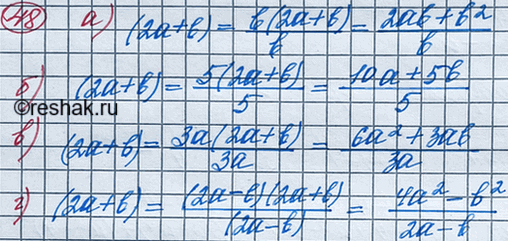 48 а) (2a+b) = b(2a+b)/b = 2ab+b²/b
б) (2a+b) = 5(2a+b)/5 = 10a+5b/5
©reshak.ru
в) (2a+b) = 3a(2a+b)/3a = 6a²+3ab/3a
г) (2a+b) = (2a-b)(2a+b)/(2a-b) = 4a²-b²/2a-b